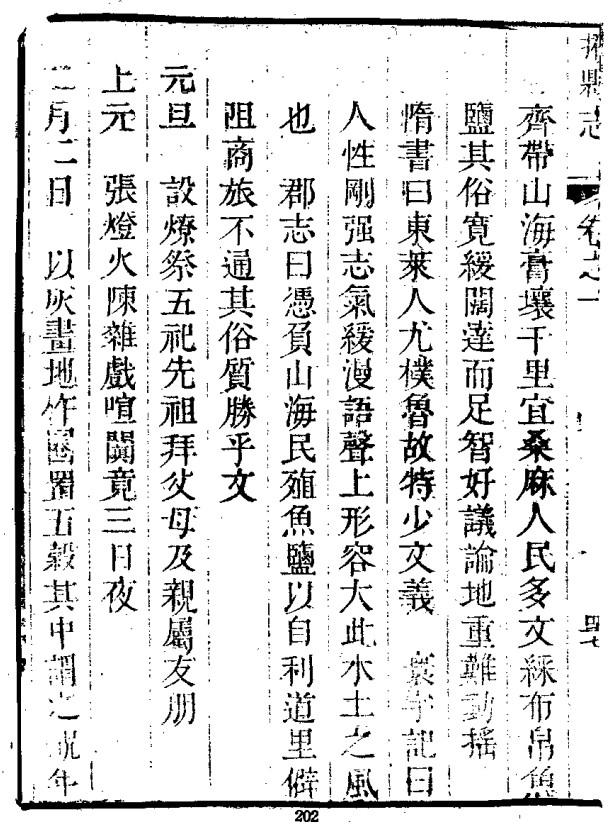 志 卷之一
齊帶山海膏壤千里宜桑麻人民多文綵布帛魚
鹽其俗寬緩闊達而足智好議論地重難動搖
隋書曰東萊人尤樸魯故特少文義 寰宇記曰
人性剛强志氣緩漫語聲上形容大此水土之風
也 郡志曰憑負山海民殖魚鹽以自利道里僻
阻商旅不通其俗質勝乎文
元旦 設燎祭五祀先祖拜父母及親屬友朋
上元 張燈火陳雜戲喧闐竟三日夜
月二日 以灰畫地作囷置五穀其中謂之
202